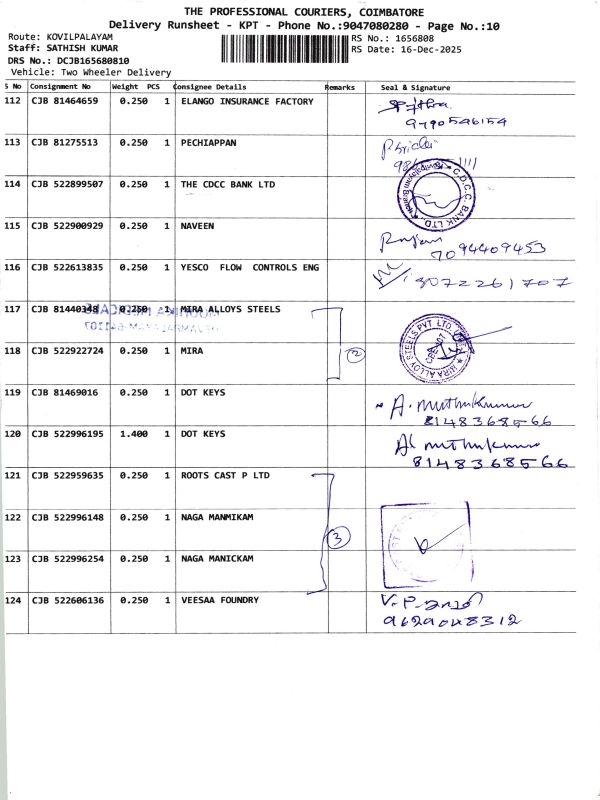 THE PROFESSIONAL COURIERS, COIMBATORE
Delivery Runsheet - KPT - Phone No.:9047080280 - Page No.:10
Route: KOVILPALAYAM
RS No.: 1656808
Staff: SATHISH KUMAR
RS Date: 16-Dec-2025
DRS No.: DCJB165680810
Vehicle: Two Wheeler Delivery
S No Consignment No Weight PCS Consignee Details Remarks Seal & Signature
112 CJB 81464659 0.250 1 ELANGO INSURANCE FACTORY
9790546154
113 CJB 81275513 0.250 1 PECHIAPPAN
114 CJB 522899507 0.250 1 THE CDCC BANK LTD
C.D.C.C. BANK LTD.,
115 CJB 522900929 0.250 1 NAVEEN
7094409453
116 CJB 522613835 0.250 1 YESCO FLOW CONTROLS ENG
9072261707
117 CJB 81440348 0.250 1 MIRA ALLOYS STEELS
MIRA ALLOY STEELS PVT LTD.
118 CJB 522922724 0.250 1 MIRA
2
119 CJB 81469016 0.250 1 DOT KEYS
A. Muthukumar
8148368566
120 CJB 522996195 1.400 1 DOT KEYS
8148368566
121 CJB 522959635 0.250 1 ROOTS CAST P LTD
122 CJB 522996148 0.250 1 NAGA MANMIKAM
3
123 CJB 522996254 0.250 1 NAGA MANICKAM
124 CJB 522606136 0.250 1 VEESAA FOUNDRY
9629048312